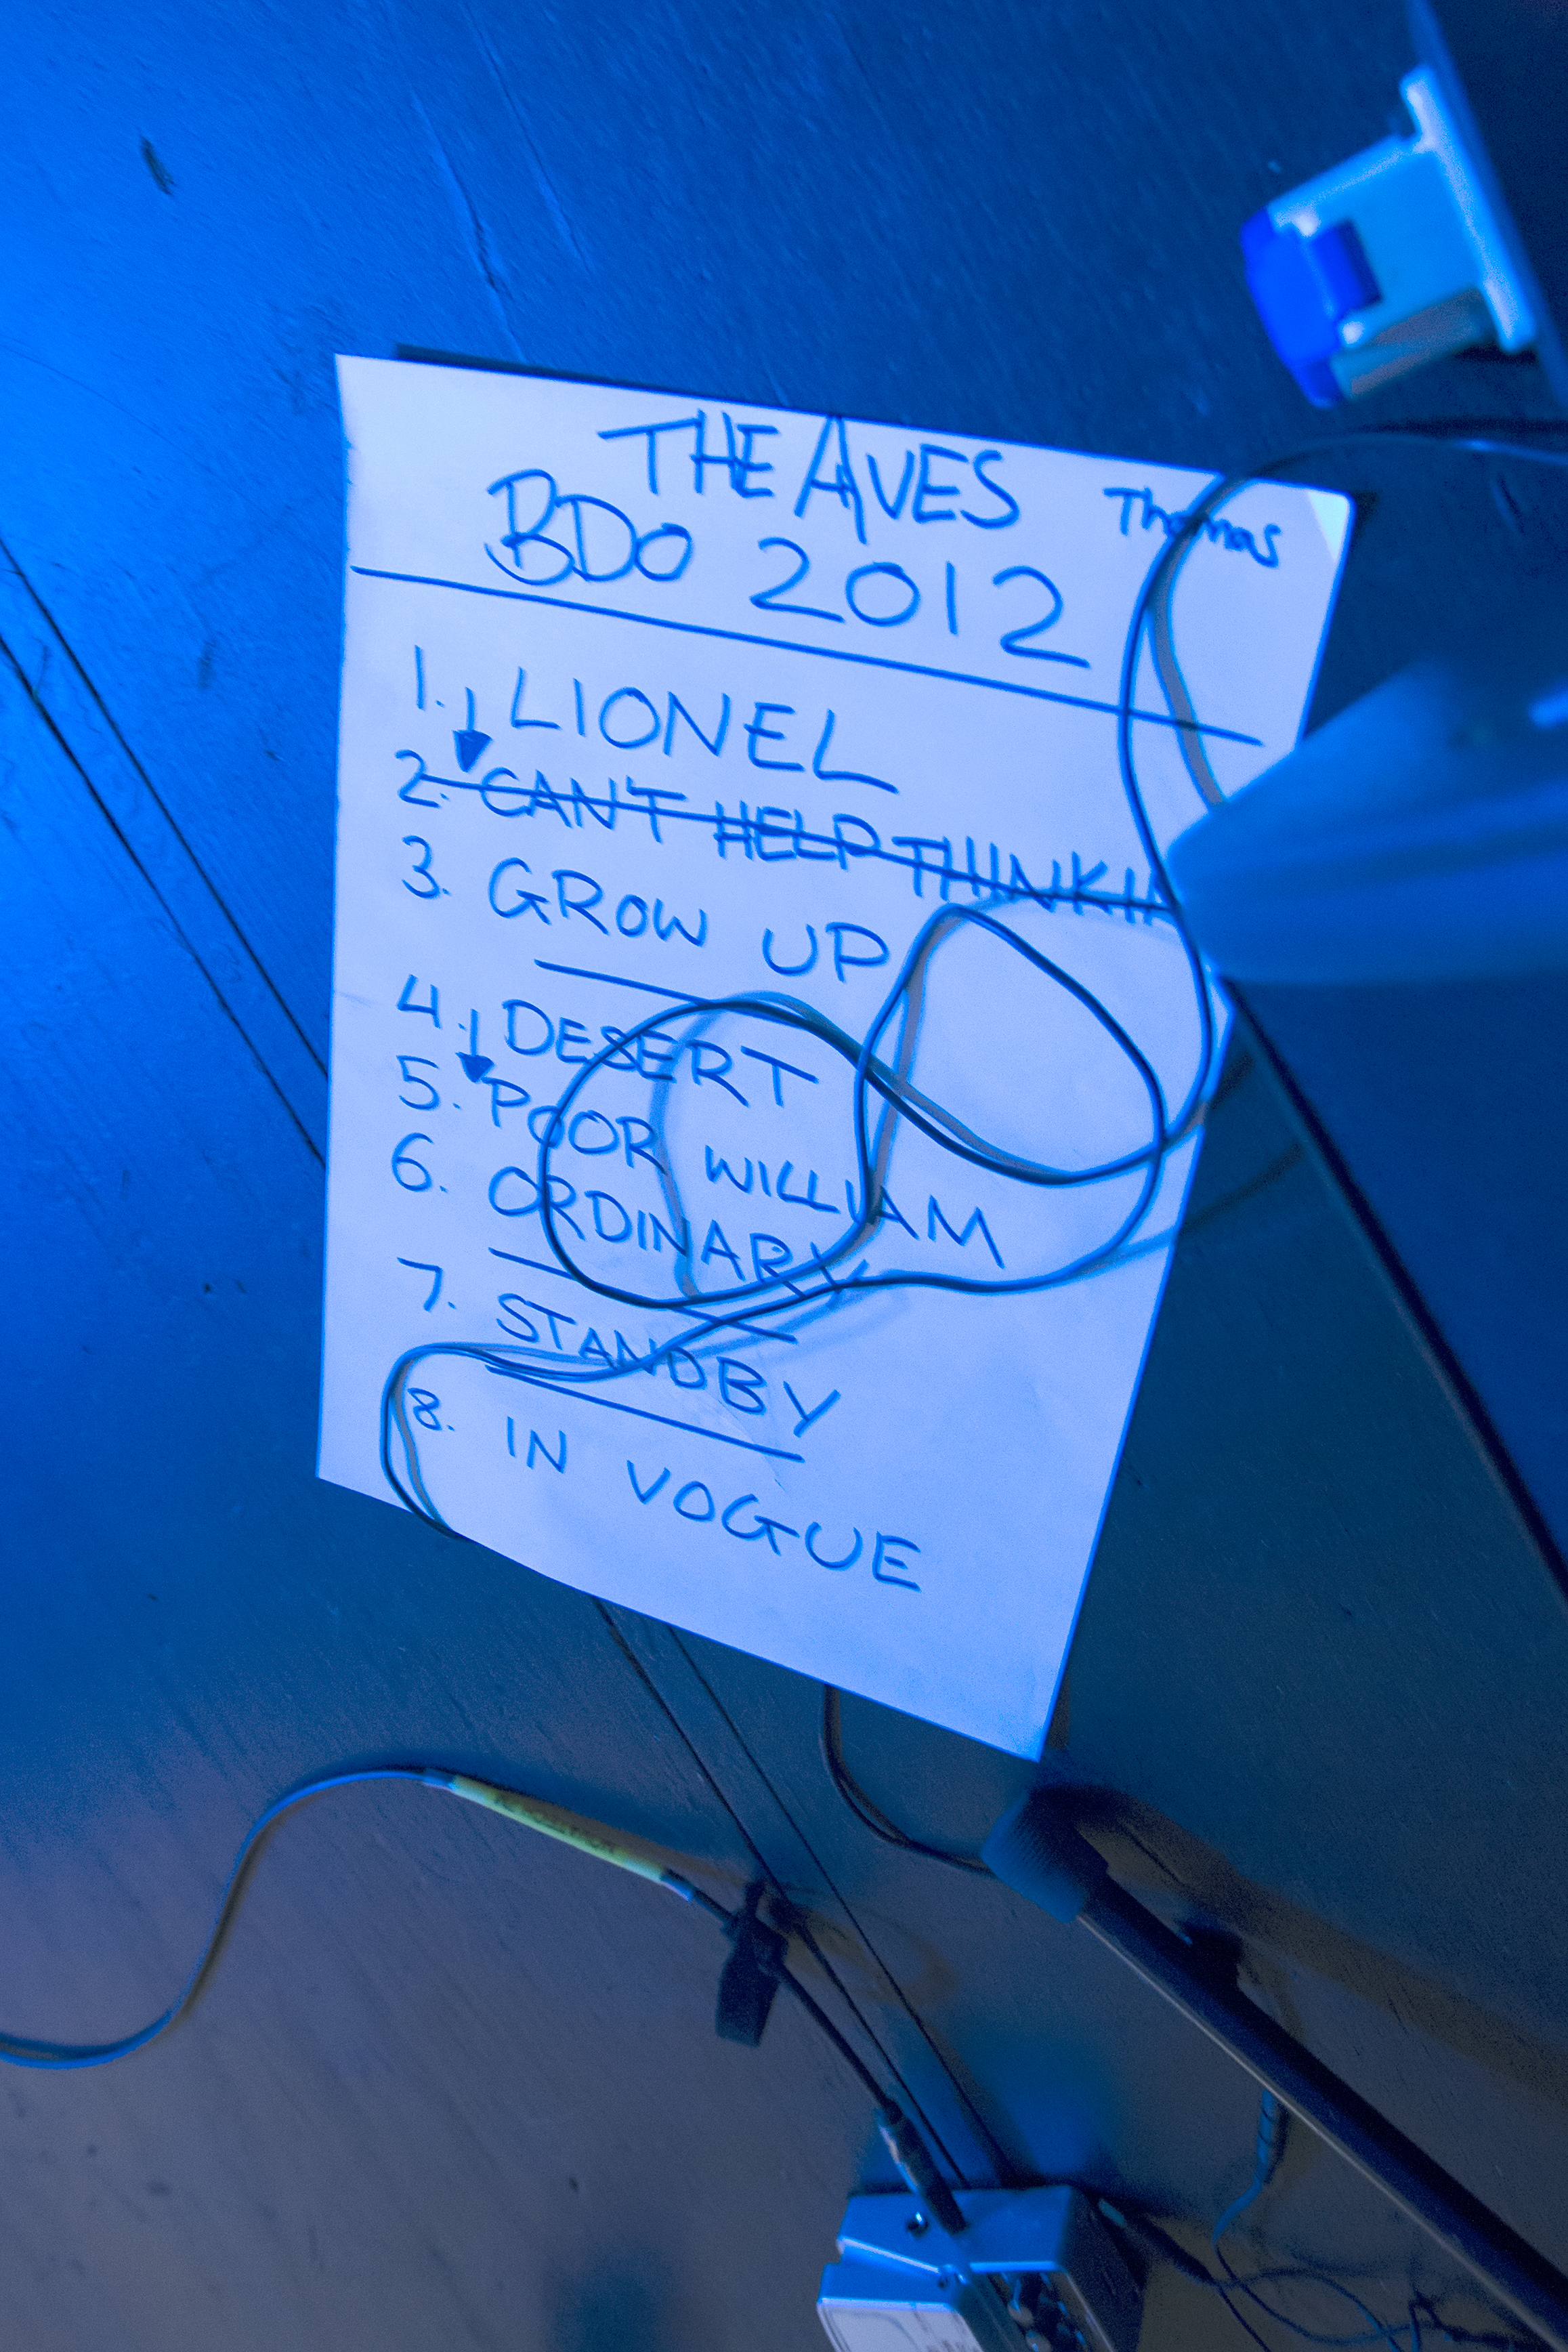 THE AVES
Thomas
BDO 2012
1. LIONEL
2. CAN'T HELP THINKIN
3. GROW UP
4. DESERT
5. POOR WILLIAM
6. ORDINARY
7. STANDBY
8. IN VOGUE